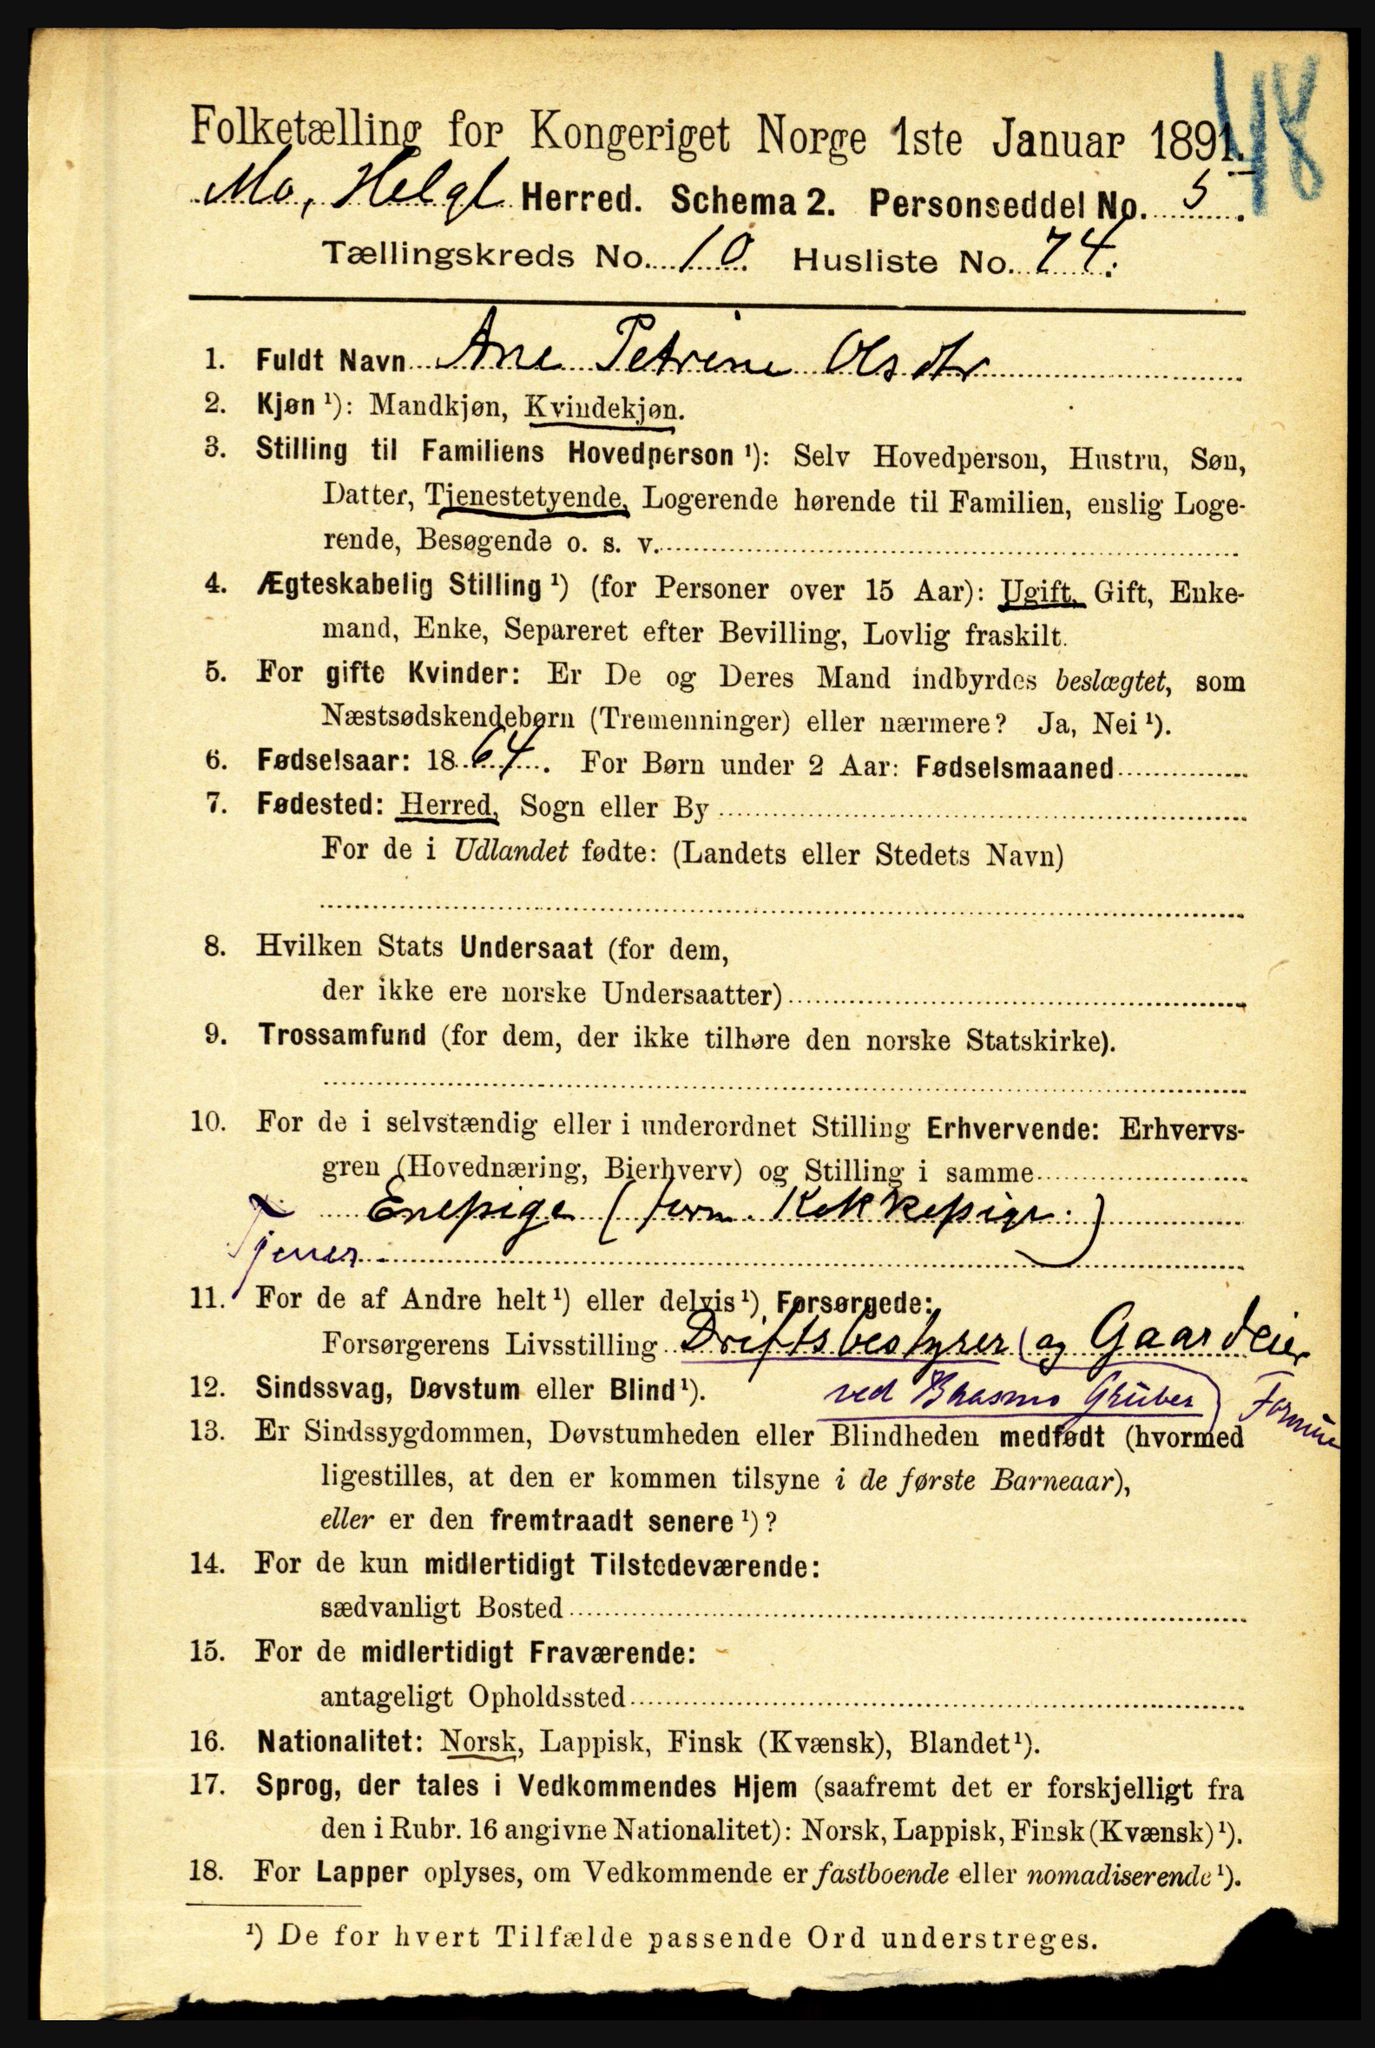 48
Folketælling for Kongeriget Norge 1ste Januar 1891.
Mo, Helgl Herred. Schema 2. Personseddel No. 5.
Tællingskreds No. 10 Husliste No. 74.
1. Fuldt Navn Ane Petrine Olsdtr
2. Kjøn ¹): Mandkjøn, Kvindekjøn.
3. Stilling til Familiens Hovedperson ¹): Selv Hovedperson, Hustru, Søn,
Datter, Tjenestetyende, Logerende hørende til Familien, enslig Loge-
rende, Besøgende o. s. v.
4. Ægteskabelig Stilling ¹) (for Personer over 15 Aar): Ugift, Gift, Enke-
mand, Enke, Separeret efter Bevilling, Lovlig fraskilt.
5. For gifte Kvinder: Er De og Deres Mand indbyrdes beslægtet, som
Næstsødskendebørn (Tremenninger) eller nærmere? Ja, Nei ¹).
6. Fødselsaar: 1864. For Børn under 2 Aar: Fødselsmaaned
7. Fødested: Herred, Sogn eller By
For de i Udlandet fødte: (Landets eller Stedets Navn)
8. Hvilken Stats Undersaat (for dem,
der ikke ere norske Undersaatter)
9. Trossamfund (for dem, der ikke tilhøre den norske Statskirke).
10. For de i selvstændig eller i underordnet Stilling Erhvervende: Erhvervs-
gren (Hovednæring, Bierhverv) og Stilling i samme
Enepige (form. Kokkepige.)
Tjener
11. For de af Andre helt ¹) eller delvis ¹) Forsørgede:
Forsørgerens Livsstilling Driftsbestyrer (og Gaardeier
12. Sindssvag, Døvstum eller Blind ¹). ved Gruber
13. Er Sindssygdommen, Døvstumheden eller Blindheden medfødt (hvormed
ligestilles, at den er kommen tilsyne i de første Barneaar),
eller er den fremtraadt senere ¹)?
14. For de kun midlertidigt Tilstedeværende:
sædvanligt Bosted
15. For de midlertidigt Fraværende:
antageligt Opholdssted
16. Nationalitet: Norsk, Lappisk, Finsk (Kvænsk), Blandet ¹).
17. Sprog, der tales i Vedkommendes Hjem (saafremt det er forskjelligt fra
den i Rubr. 16 angivne Nationalitet): Norsk, Lappisk, Finsk (Kvænsk) ¹).
18. For Lapper oplyses, om Vedkommende er fastboende eller nomadiserende ¹).
¹) De for hvert Tilfælde passende Ord understreges.